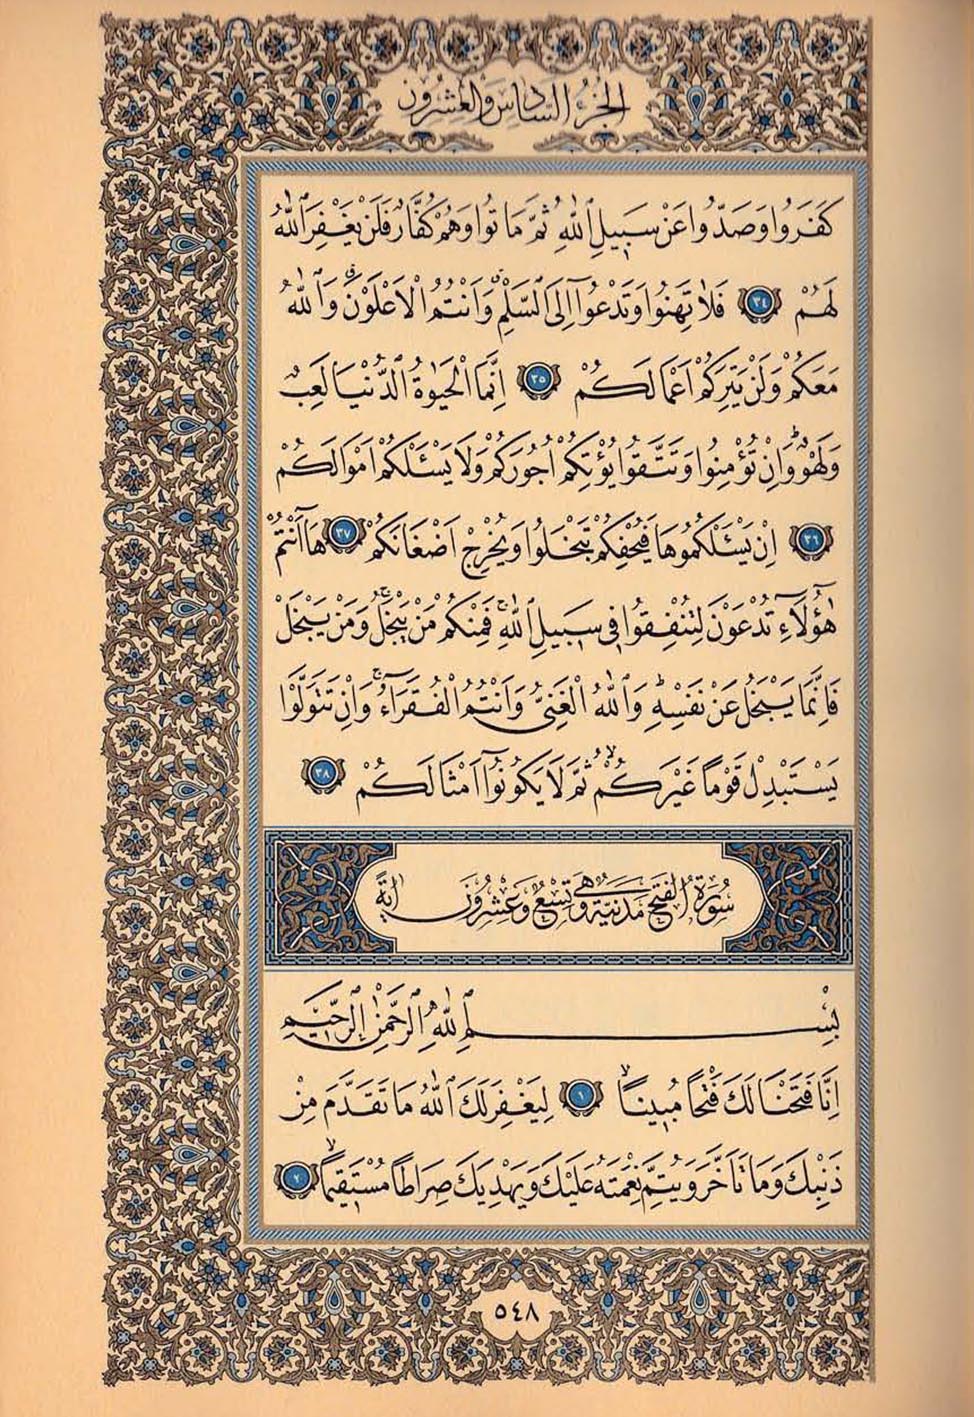 الجزء السادس والعشرون
كَفَرُوا وَصَدُّوا عَنْ سَبِيلِ اللّٰهِ ثُمَّ مَاتُوا وَهُمْ كُفَّارٌ فَلَنْ يَغْفِرَ اللّٰهُ
لَهُمْ ﴿٣٤﴾ فَلَا تَهِنُوا وَتَدْعُٓوا اِلَى السَّلْمِۗ وَاَنْتُمُ الْاَعْلَوْنَۗ وَاللّٰهُ
مَعَكُمْ وَلَنْ يَتِرَكُمْ اَعْمَالَكُمْ ﴿٣٥﴾ اِنَّمَا الْحَيٰوةُ الدُّنْيَا لَعِبٌ
وَلَهْوٌۜ وَاِنْ تُؤْمِنُوا وَتَتَّقُوا يُؤْتِكُمْ اُجُورَكُمْ وَلَا يَسْـَٔلْكُمْ اَمْوَالَكُمْ
﴿٣٦﴾ اِنْ يَسْـَٔلْكُمُوهَا فَيُحْفِكُمْ تَبْخَلُوا وَيُخْرِجْ اَضْغَانَكُمْ ﴿٣٧﴾ هَٓا اَنْتُمْ
هٰٓؤُ۬لَٓاءِ تُدْعَوْنَ لِتُنْفِقُوا فٖي سَبٖيلِ اللّٰهِۚ فَمِنْكُمْ مَنْ يَبْخَلُۚ وَمَنْ يَبْخَلْ
فَاِنَّمَا يَبْخَلُ عَنْ نَفْسِهٖۜ وَاللّٰهُ الْغَنِيُّ وَاَنْتُمُ الْفُقَرَٓاءُۚ وَاِنْ تَتَوَلَّوْا
يَسْتَبْدِلْ قَوْمًا غَيْرَكُمْۙ ثُمَّ لَا يَكُونُٓوا اَمْثَالَكُمْ ﴿٣٨﴾
سُورَةُ الْفَتْحِ مَدَنِيَّةٌ وَهِيَ تِسْعٌ وَعِشْرُونَ اٰيَةً
بِسْمِ اللّٰهِ الرَّحْمٰنِ الرَّحٖيمِ
اِنَّا فَتَحْنَا لَكَ فَتْحًا مُبٖينًاۙ ﴿١﴾ لِيَغْفِرَ لَكَ اللّٰهُ مَا تَقَدَّمَ مِنْ
ذَنْبِكَ وَمَا تَاَخَّرَ وَيُتِمَّ نِعْمَتَهُ عَلَيْكَ وَيَهْدِيَكَ صِرَاطًا مُسْتَقٖيمًاۙ ﴿٢﴾
٥٤٨